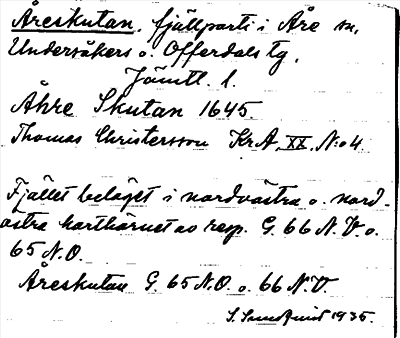 Åreskutan, fjällparti i Åre sn,
Undersåkers o. Offerdals tg,
Jämtl. l.
Åhre Skutan 1645.
Thomas Christersson Kr.A. XX. N:o 4
Fjället beläget i nordvästra o. nord-
östra karthörnet av resp. G. 66 N.V. o.
65 N.O.
Åreskutan G. 65 N.O. o. 66 N.V.
1935.